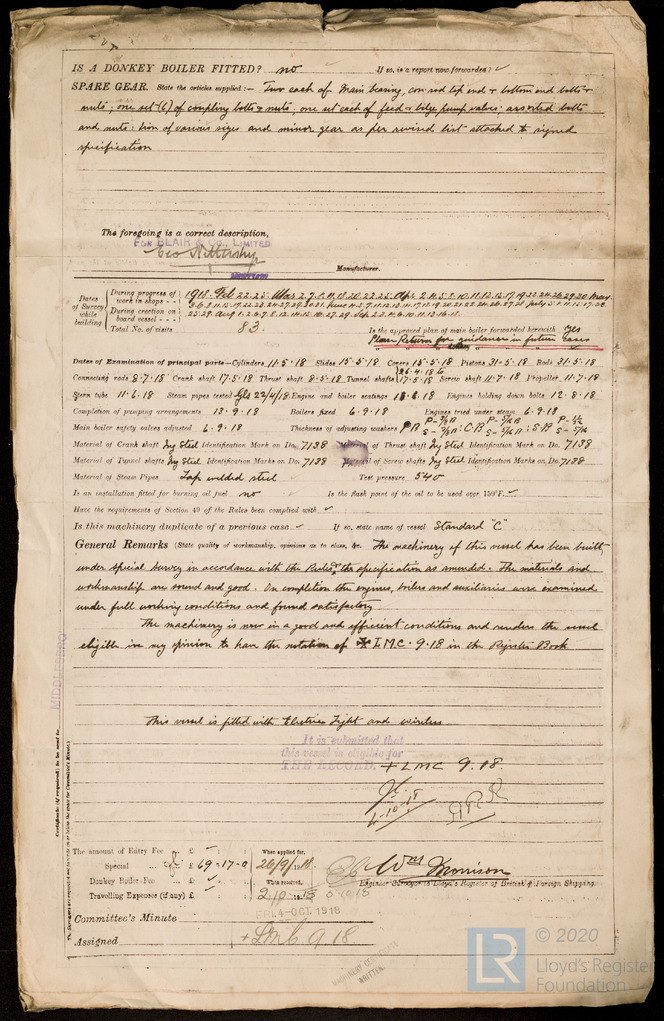 IS A DONKEY BOILER FITTED? no If so, is a report now forwarded? ✓
SPARE GEAR. State the articles supplied:— Two each of Main bearing, con rod top end & bottom end bolts &
nuts; one set (6) of coupling bolts & nuts, one set each of feed & bilge pump valves; assorted bolts
and nuts: iron of various sizes and minor gear as per revised list attached to signed
specification
The foregoing is a correct description,
FOR BLAIR & CO., LIMITED
Manufacturer.
Dates of Survey while building
During progress of work in shops - -
During erection on board vessel - - -
Total No. of visits 83.
1918. Feb 22.25. Mar
Is the approved plan of main boiler forwarded herewith yes
Please Return for guidance in future cases
Dates of Examination of principal parts—Cylinders 11.5.18 Slides 15.5.18 Covers 15.5.18 Pistons 31.5.18 Rods 31.5.18
Connecting rods 8.7.18 Crank shaft 17.5.18 Thrust shaft 8.5.18 Tunnel shafts 26.4.18 to 17.5.18 Screw shaft 11.7.18 Propeller 11.7.18
Stern tube 11.6.18 Steam pipes tested 22/4/18 Engine and boiler seatings 18.6.18 Engines holding down bolts 12.8.18
Completion of pumping arrangements 13.9.18 Boilers fixed 6.9.18 Engines tried under steam 6.9.18
Main boiler safety valves adjusted 6.9.18 Thickness of adjusting washers
Material of Crank shaft Ing Steel Identification Mark on Do. 7138 Material of Thrust shaft Ing Steel Identification Mark on Do. 7138
Material of Tunnel shafts Ing Steel Identification Marks on Do. 7138 Material of Screw shafts Ing Steel Identification Marks on Do. 7138
Material of Steam Pipes Lap welded steel Test pressure 540
Is an installation fitted for burning oil fuel no Is the flash point of the oil to be used over 150°F. ✓
Have the requirements of Section 49 of the Rules been complied with ✓
Is this machinery duplicate of a previous case ✓ If so, state name of vessel Standard "C"
General Remarks (State quality of workmanship, opinions as to class, &c. The machinery of this vessel has been built
under special survey in accordance with the Rules & the specification as amended. The materials and
workmanship are sound and good. On completion the engines, boilers and auxiliaries were examined
under full working conditions and found satisfactory
The machinery is now in a good and efficient conditions and renders the vessel
eligible in my opinion to have the notation of + LMC. 9.18 in the Register Book
This vessel is fitted with Electric Light and wireless
It is submitted that
this vessel is eligible for
THE RECORD. + LMC 9.18
4-10-18
The amount of Entry Fee .. £ When applied for,
Special ... £ 69-17-0 26/9/1918
Donkey Boiler Fee £ When received,
Travelling Expenses (if any) £ 2.10.18
Wm Morrison
Engineer Surveyor to Lloyd's Register of British & Foreign Shipping.
Committee's Minute FRI. 4-OCT. 1918
Assigned + LMC 9.18
MIDDLESBRO
© 2020
Lloyd's Register
Foundation
LR